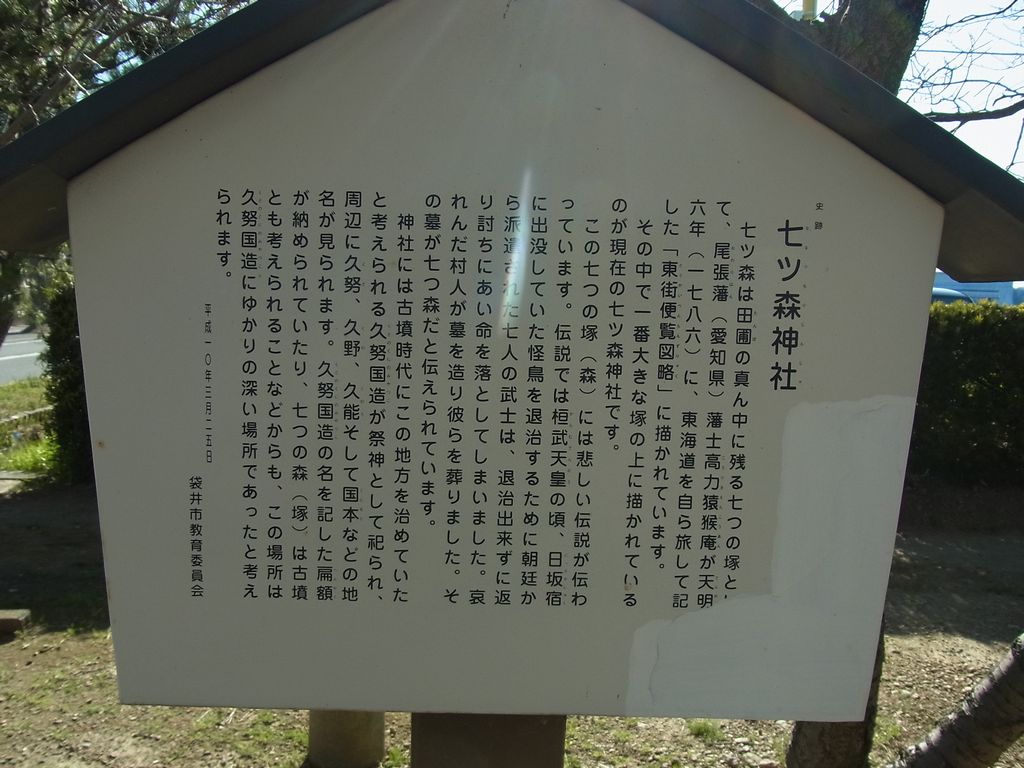 史跡
七ツ森神社
七ツ森は田圃の真ん中に残る七つの塚とし
て、尾張藩（愛知県）藩士高力猿猴庵が天明
六年（一七八六）に、東海道を自ら旅して記
した「東街便覧図略」に描かれています。
その中で一番大きな塚の上に描かれている
のが現在の七ツ森神社です。
この七つの塚（森）には悲しい伝説が伝わ
っています。伝説では桓武天皇の頃、日坂宿
に出没していた怪鳥を退治するために朝廷か
ら派遣された七人の武士は、退治出来ずに返
り討ちにあい命を落としてしまいました。哀
れんだ村人が墓を造り彼らを葬りました。そ
の墓が七つ森だと伝えられています。
神社には古墳時代にこの地方を治めていた
と考えられる久努国造が祭神として祀られ、
周辺に久努、久野、久能そして国本などの地
名が見られます。久努国造の名を記した扁額
が納められていたり、七つの森（塚）は古墳
とも考えられることなどからも、この場所は
久努国造にゆかりの深い場所であったと考え
られます。
平成一〇年三月二五日
袋井市教育委員会